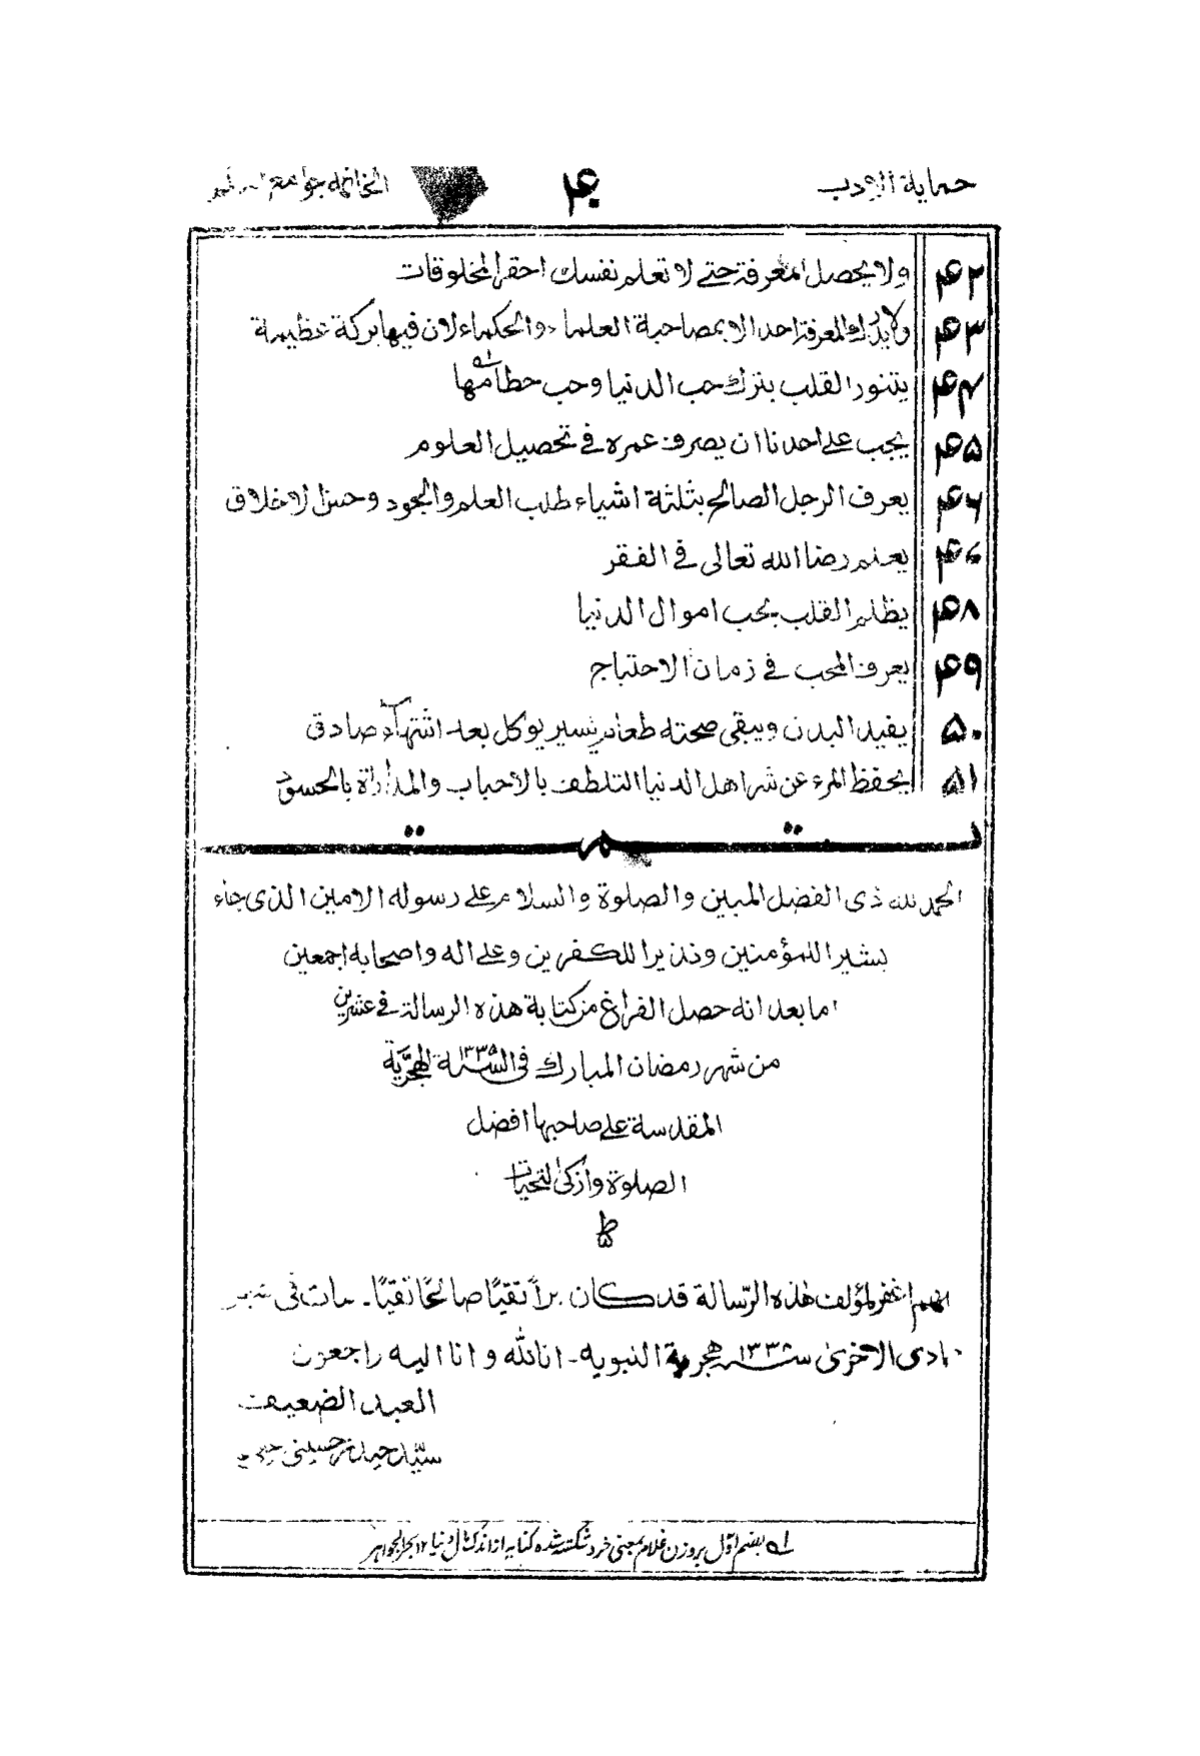 حماية الادب ۴۰ الخاتمه جوامع
۴۲ ولا يحصل المعرفة حتى لا تعلم نفسك احقر المخلوقات
۴۳ ولا يدرك المعرفة احد الا بمصاحبة العلماء والحكماء لان فيها بركة عظيمة
۴۴ يتنور القلب بترك حب الدنيا وحب حطامها
۴۵ يجب على احدنا ان يصرف عمره فى تحصيل العلوم
۴۶ يعرف الرجل الصالح بثلثة اشياء طلب العلم والجود وحسن الاخلاق
۴۷ يعلم رضا الله تعالى فى الفقر
۴۸ يظلم القلب بحب اموال الدنيا
۴۹ يعرف المحب فى زمان الاحتياج
۵۰ يفيد البدن ويبقى صحته طعام يسير يوكل بعد اشتهاء صادق
۵۱ يحفظ المرء عن شر اهل الدنيا التلطف بالاحباب والمداراة بالحسود
تمت
الحمد لله ذى الفضل المبين والصلوة والسلام على رسوله الامين الذى جاء
بشيرا للمؤمنين ونذيرا للكفرين وعلى اله واصحابه اجمعين
اما بعد انه حصل الفراغ من كتابة هذه الرسالة فى عشرين
من شهر رمضان المبارك فى السنة ۱۳۳۵ الهجرية
المقدسة على صاحبها افضل
الصلوة وازكى التحيات
ط
اللهم اغفر لمؤلف هذه الرّسالة قد كان براً تقيًا صالحًا نقيًا۔ مات فى
جمادى الاخرىٰ سنه ۱۳۳۸ هجرية النبويه۔ انا لله و انا اليه راجعون
العبد الضعيف
سيّد حيدر حسينى
له بضم اوّل بروزن غلام بمعنى خرد شكسته شده كنايه از اندك مال دنيا ۱۲ بحر الجواهر